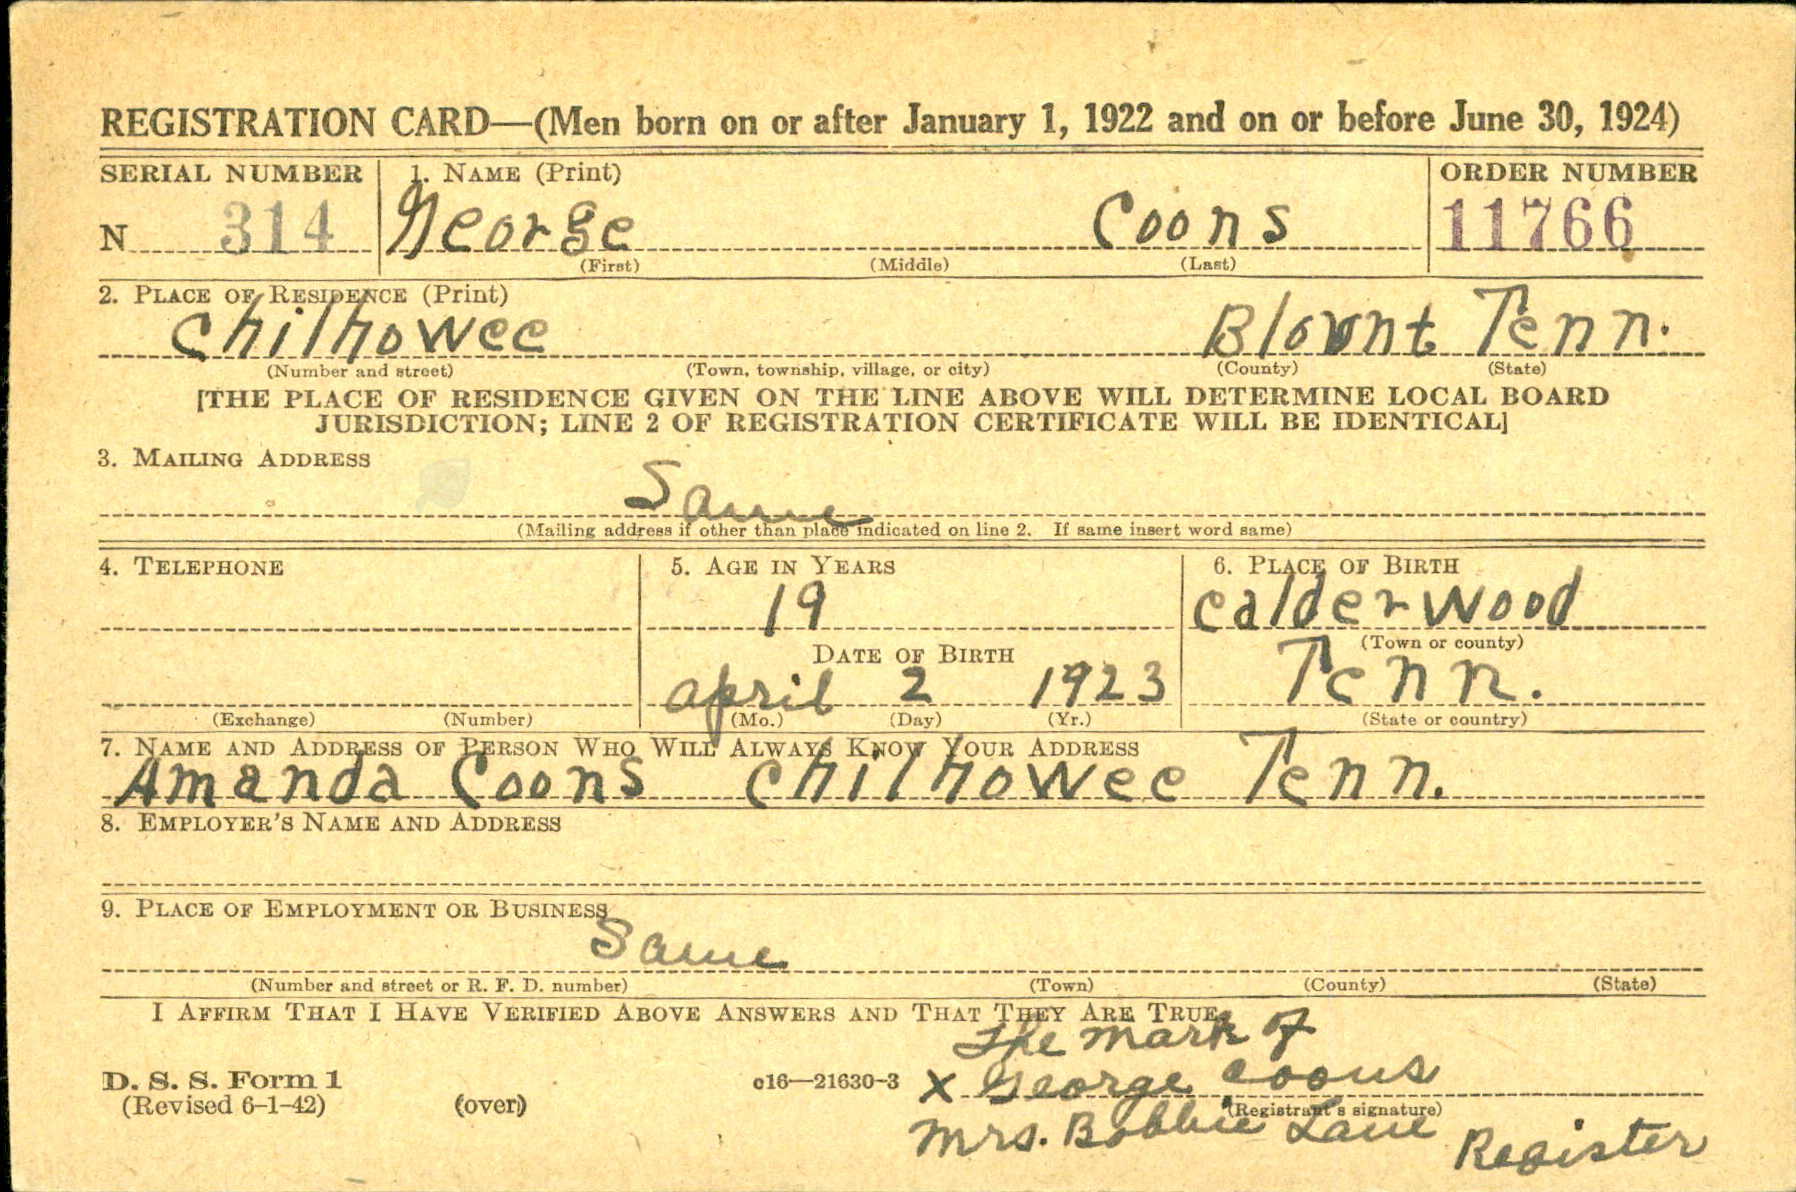 REGISTRATION CARD—(Men born on or after January 1, 1922 and on or before June 30, 1924)
SERIAL NUMBER 1. NAME (Print) ORDER NUMBER
N 314 George Coons 11766
(First) (Middle) (Last)
2. PLACE OF RESIDENCE (Print)
Chilhowee Blount Tenn.
(Number and street) (Town, township, village, or city) (County) (State)
[THE PLACE OF RESIDENCE GIVEN ON THE LINE ABOVE WILL DETERMINE LOCAL BOARD
JURISDICTION; LINE 2 OF REGISTRATION CERTIFICATE WILL BE IDENTICAL]
3. MAILING ADDRESS
Same
(Mailing address if other than place indicated on line 2. If same insert word same)
4. TELEPHONE 5. AGE IN YEARS 6. PLACE OF BIRTH
19 Calderwood
DATE OF BIRTH (Town or county)
April 2 1923 Tenn.
(Exchange) (Number) (Mo.) (Day) (Yr.) (State or country)
7. NAME AND ADDRESS OF PERSON WHO WILL ALWAYS KNOW YOUR ADDRESS
Amanda Coons Chilhowee Tenn.
8. EMPLOYER'S NAME AND ADDRESS
9. PLACE OF EMPLOYMENT OR BUSINESS
Same
(Number and street or R. F. D. number) (Town) (County) (State)
I AFFIRM THAT I HAVE VERIFIED ABOVE ANSWERS AND THAT THEY ARE TRUE.
The mark of
D. S. S. Form 1 c16—21630-3 X George Coons
(Revised 6-1-42) (over) (Registrant's signature)
Mrs. Bobbie Lane Register